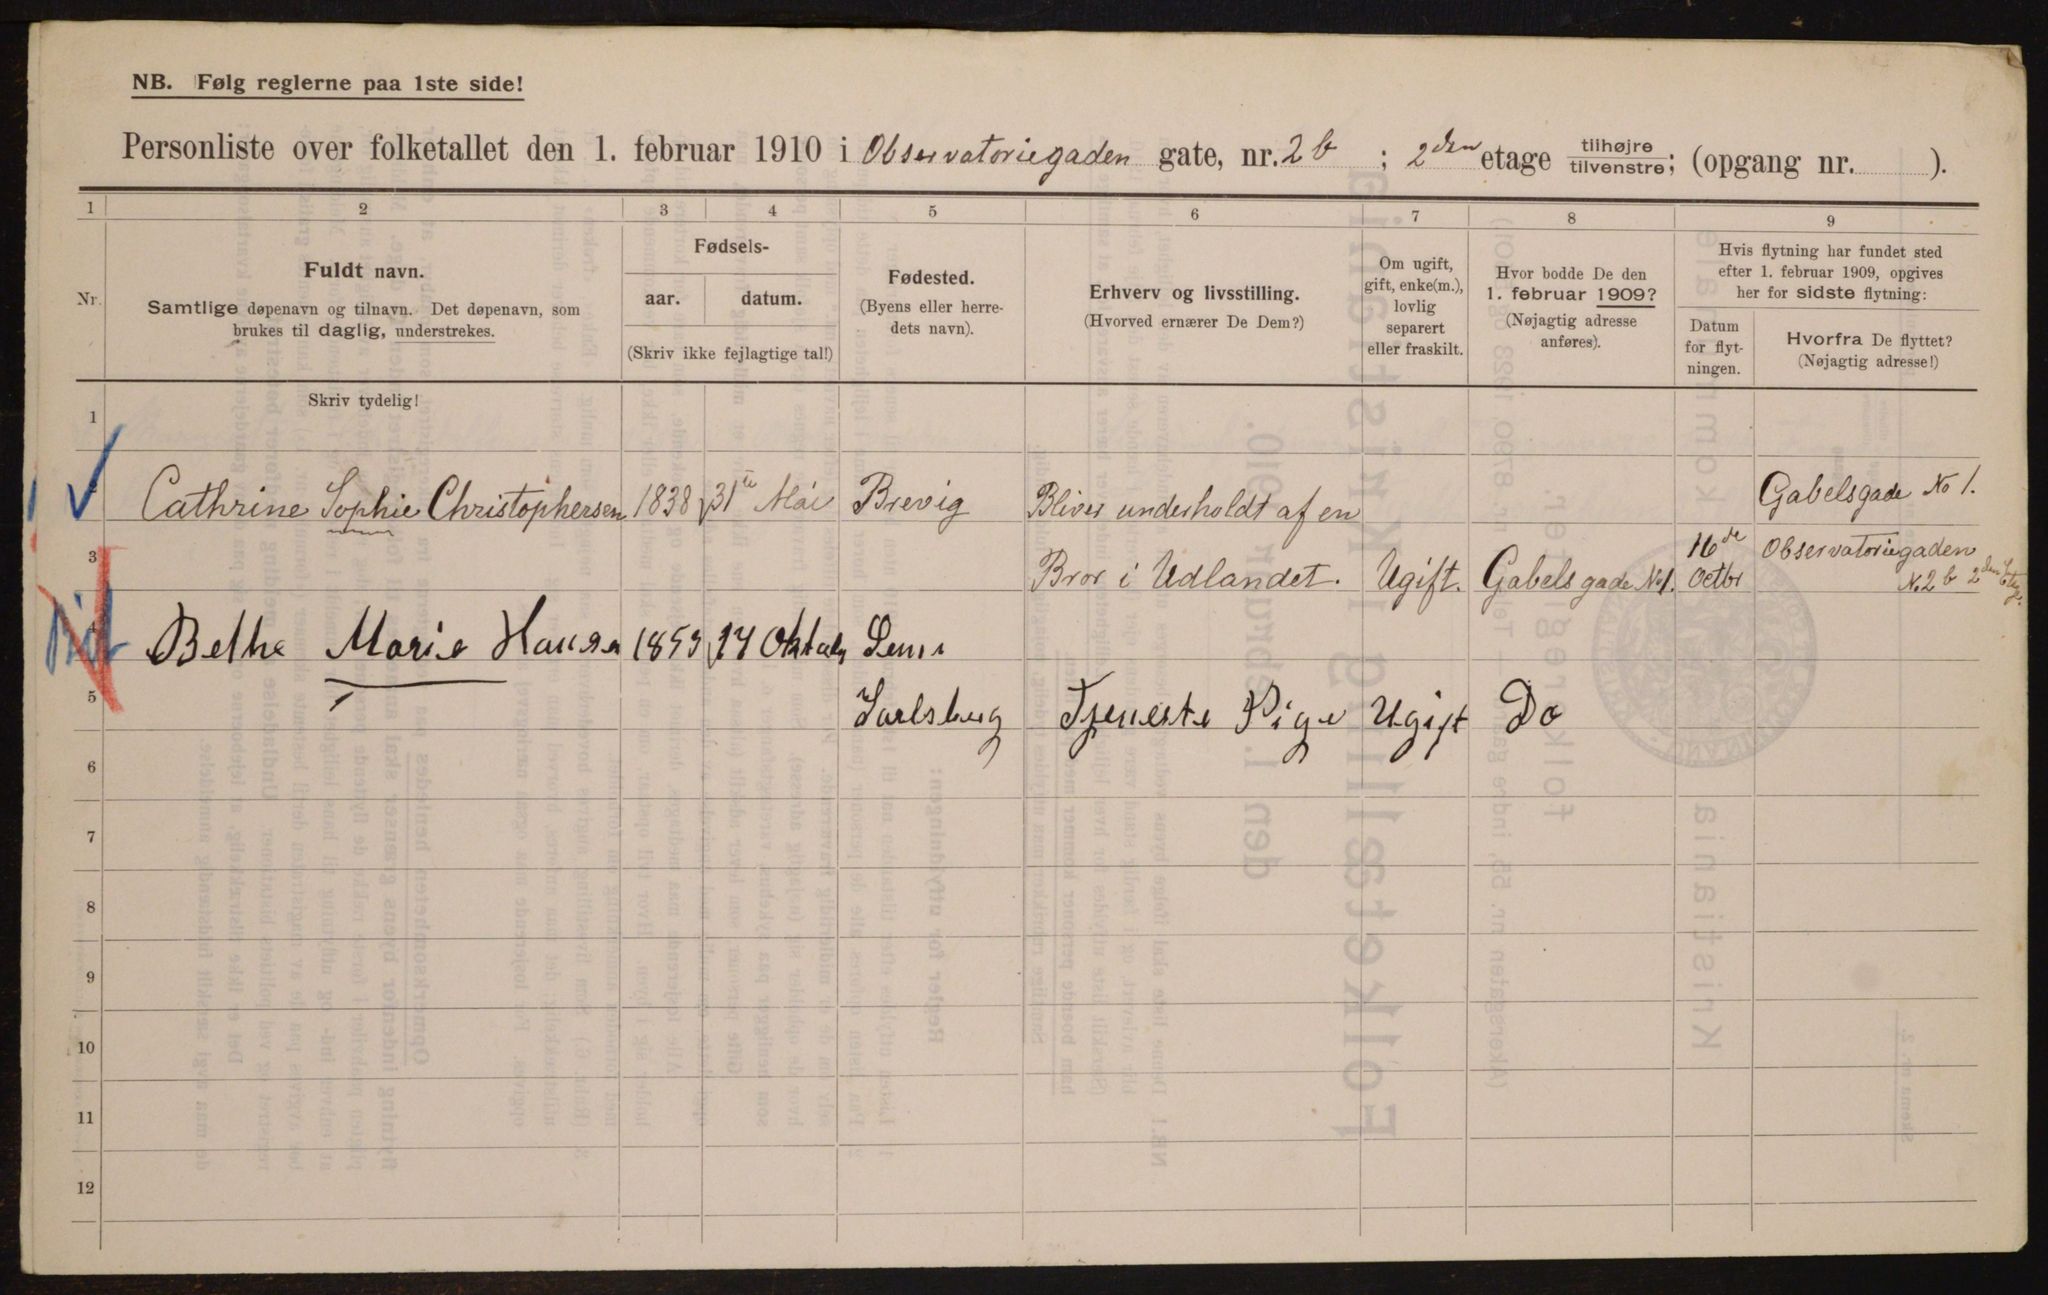 NB. Følg reglerne paa 1ste side!
Personliste over folketallet den 1. februar 1910 i Observatoriegaden gate, nr. 2b ; 2den etage tilhøjre/tilvenstre; (opgang nr. ).
1 2 3 4 5 6 7 8 9
Nr.
Fuldt navn.
Samtlige døpenavn og tilnavn. Det døpenavn, som
brukes til daglig, understrekes.
Fødsels-
aar. datum.
(Skriv ikke fejlagtige tal!)
Fødested.
(Byens eller herre-
dets navn).
Erhverv og livsstilling.
(Hvorved ernærer De Dem?)
Om ugift,
gift, enke(m.),
lovlig
separert
eller fraskilt.
Hvor bodde De den
1. februar 1909?
(Nøjagtig adresse
anføres).
Hvis flytning har fundet sted
efter 1. februar 1909, opgives
her for sidste flytning:
Datum
for flyt-
ningen.
Hvorfra De flyttet?
(Nøjagtig adresse!)
Skriv tydelig!
1
Cathrine Sophie Christophersen 1838 31te Mai Brevig Bliver underholdt af en Gabelsgade No 1.
3 Bror i Udlandet. Ugift. Gabelsgade No 1. 16de Octbr Observatoriegaden
No. 2 b 2den Etage.
4 Bethe Marie Hansen 14 Sem
5 Jarlsberg Tjeneste Pige Ugift Do
6
7
8
9
10
11
12